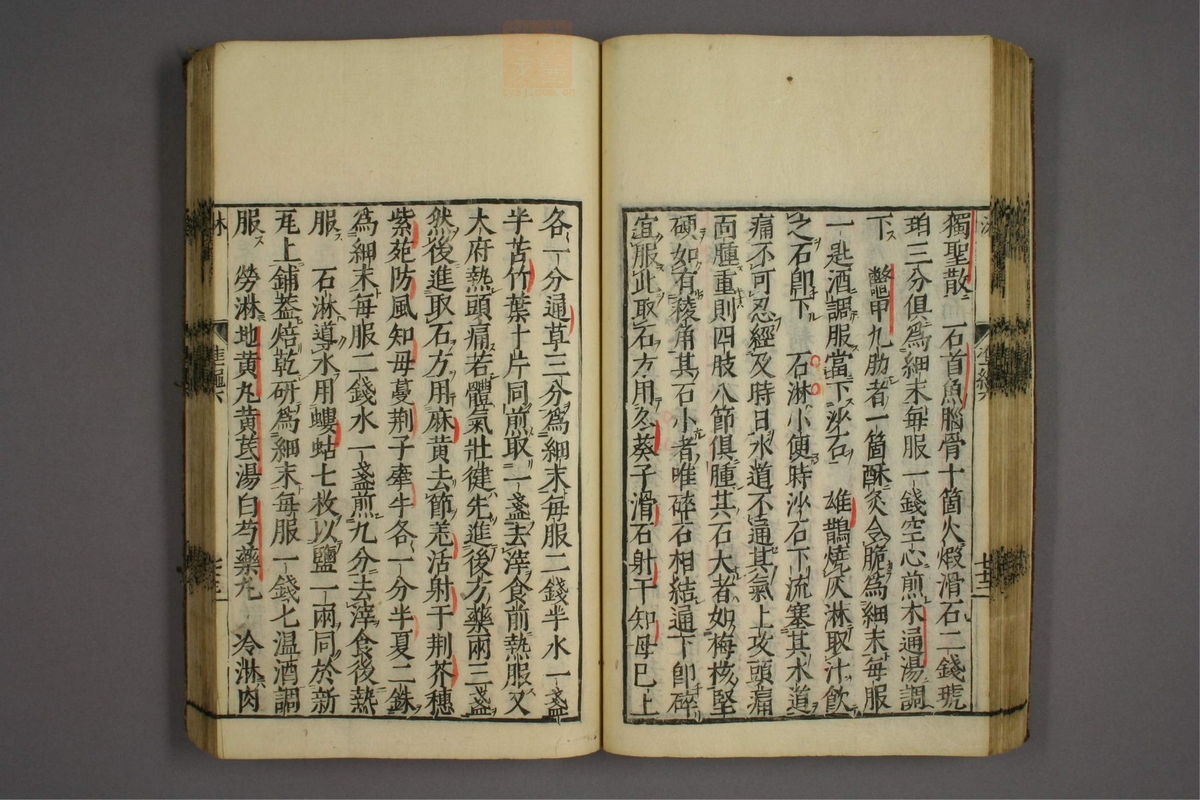 獨聖散 石首魚腦骨十箇火煆滑石二錢琥
珀三分俱爲細末每服一錢空心煎木通湯調
下 鱉甲九肋者一箇酥灸令脆爲細末每服
一匙酒調服當下沙石 雄鵲燒灰淋取汁飲
之石卽下 石淋小便時沙石下流塞其水道
痛不可忍經及時日水道不通其氣上攻頭痛
面腫重則四肢八節俱腫其石大者如梅核堅
硬如有稜角其石小者唯碎石相結通下卽碎
宜服此取石方用冬葵子滑石射干知母巳上
各一分通草三分爲細末每服二錢半水一盞
半苦竹葉十片同煎取一盞去滓食前熱服又
大府熱頭痛若體氣壯健先進後方藥兩三盞
然後進取石方用麻黄去節羌活射干荆芥穗
紫苑防風知母蔓荆子牽牛各一分半夏二銖
爲細末每服二錢水一盞煎九分去滓食後熱
服 石淋導水用螻蛄七枚以鹽一兩同於新
瓦上鋪蓋焙乾研爲細末每服一錢七温酒調
服 勞淋地黄丸黄芪湯白芍藥丸 冷淋肉